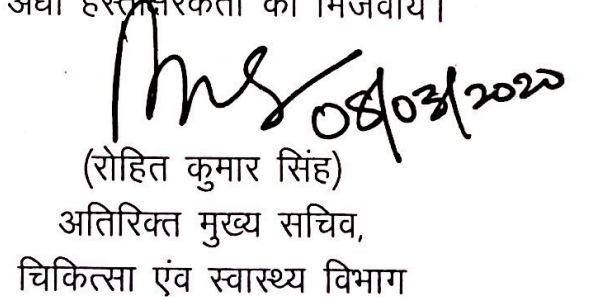 अधो हस्ताक्षरकर्ता को भिजवायें।
08/03/2020
(रोहित कुमार सिंह)
अतिरिक्त मुख्य सचिव,
चिकित्सा एंव स्वास्थ्य विभाग